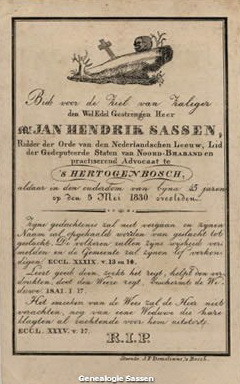 Bid voor de Ziel van Zaliger
den Wel Edel Gestrengen Heer
Mr JAN HENDRIK SASSEN,
Ridder der Orde van den Nederlandschen Leeuw, Lid
der Gedeputeerde Staten van NOORD-BRABAND en
practiserend Advocaat te
's HERTOGENBOSCH,
aldaar in den ouderdom van byna 45 jaren
op den 5 Mei 1830 overleden.
Zyne gedachtenis zal niet vergaan, en zynen
Naam zal opgehaald worden van geslacht tot
geslacht. De volkeren zullen zyne wysheid ver-
melden en de Gemeente zal zynen lof verkon-
digen. ECCL. XXXIX. v. 13 en 14.
Leert goed doen, zoekt het regt, helpt den ver-
drukten, doet den Wees regt, beschermt de We-
duwe. ISAI. I. 17.
Het smeeken van de Wees zal de Heer niet
verachten, nog van eene Weduwe die hare
klagten al zuchtende voor hem uitstort.
ECCL. XXXV. v. 17.
R.I.P.
's Bosch.
Genealogie Sassen